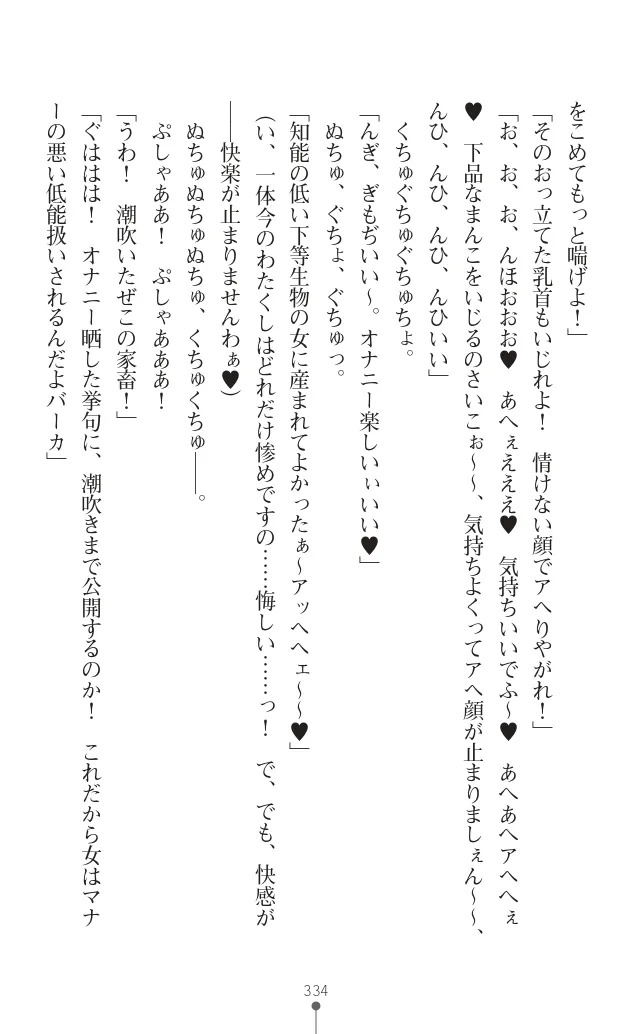 をこめてもっと喘げよ！」
「そのおっ立てた乳首もいじれよ！　情けない顔でアヘりやがれ！」
「お、お、お、んほおおお♥　あへぇえええ♥　気持ちいいでふ～♥　あへあへアへへぇ
♥　下品なまんこをいじるのさいこぉ～～、気持ちよくってアヘ顔が止まりましぇん～～、
んひ、んひ、んひ、んひいい」
　くちゅぐちゅぐちゅちょ。
「んぎ、ぎもぢいい～。オナニー楽しいぃいい♥」
　ぬちゅ、ぐちょ、ぐちゅっ。
「知能の低い下等生物の女に産まれてよかったぁ～アッへへェ～～♥」
（い、一体今のわたくしはどれだけ惨めですの……悔しい……っ！　で、でも、快感が
――快楽が止まりませんわぁ♥）
　ぬちゅぬちゅぬちゅ、くちゅくちゅ――。
　ぷしゃああ！　ぷしゃあああ！
「うわ！　潮吹いたぜこの家畜！」
「ぐははは！　オナニー晒した挙句に、潮吹きまで公開するのか！　これだから女はマナ
ーの悪い低能扱いされるんだよバーカ」
334